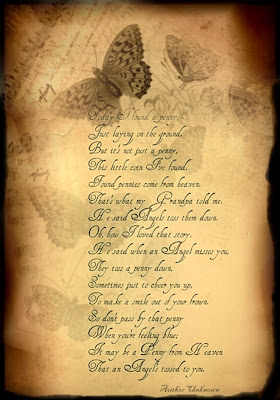 Today I found a penny,
Just laying on the ground,
But it's not just a penny,
This little coin I've found.
Found pennies come from heaven,
That's what my Grandpa told me,
He said Angels toss them down.
Oh, how I loved that story.
He said when an Angel misses you,
They toss a penny down,
Sometimes just to cheer you up,
To make a smile out of your frown.
So don't pass by that penny
When you're feeling blue;
It may be a Penny from Heaven
That an Angel's tossed to you.
Author Unknown